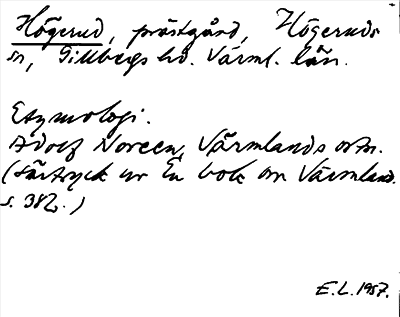 Högerud, prästgård, Högeruds
sn, Gillbergs hd. Värml. län.
Etymologi.
Adolf Noreen, Värmlands ortn.
(Särtryck ur En bok om Värmland.
s. 38.)
E.L. 1957.